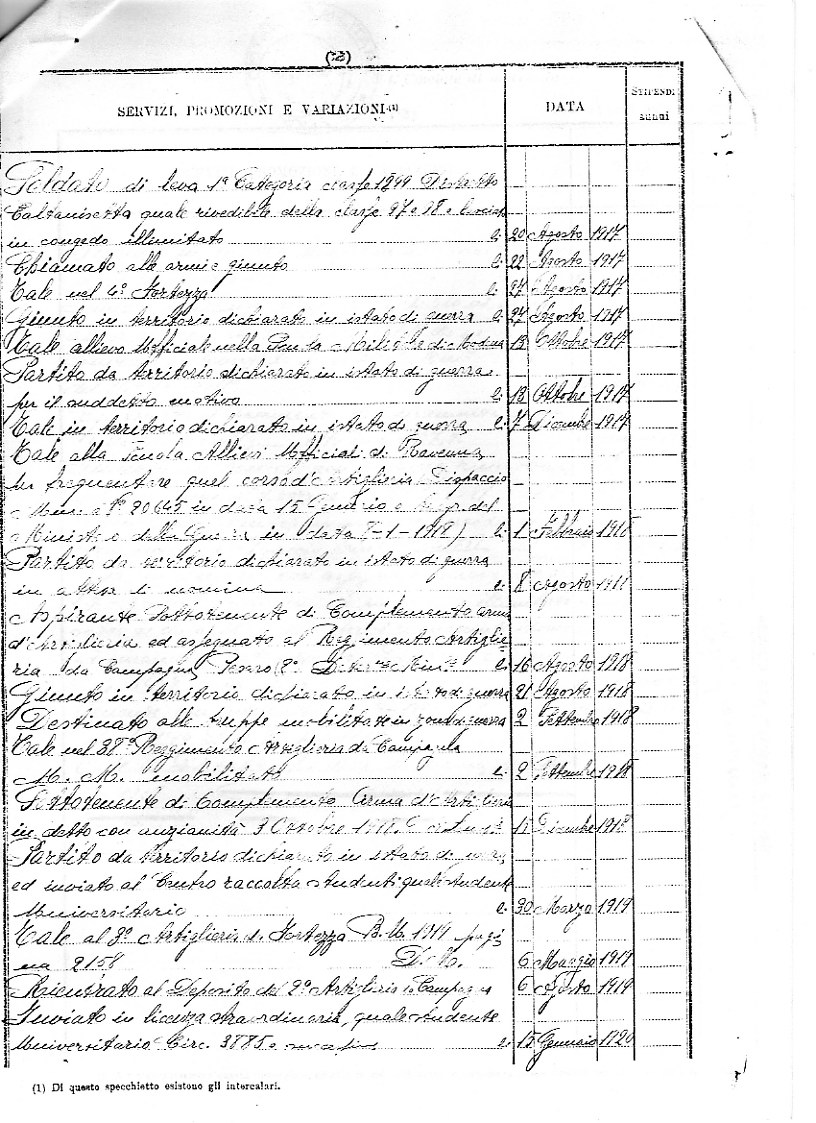 (2)
SERVIZI, PROMOZIONI E VARIAZIONI (1) DATA STIPENDI annui
Soldato di leva 1ª Categoria classe 1899 Distretto
Caltanissetta quale rivedibile della classe 97 e 98 e lasciato
in congedo illimitato li 20 Agosto 1917
Chiamato alle armi e giunto li 22 Agosto 1917
Tale nel 4º Fortezza li 27 Agosto 1917
Giunto in territorio dichiarato in istato di guerra li 27 Agosto 1917
Tale allievo Ufficiale nella Scuola Militare di Modena 13 Ottobre 1917
Partito da territorio dichiarato in istato di guerra
per il suddetto motivo li 13 Ottobre 1917
Tale in territorio dichiarato in istato di guerra li 7 Dicembre 1917
Tale alla Scuola Allievi Ufficiali di Ravenna
per frequentare quel corso d'artiglieria Dispaccio
Nº 20645 in data 15 Gennaio e
Ministero della Guerra in data 1918) li 1 Febbraio 1918
Partito da territorio dichiarato in istato di guerra
in attesa di nomina li 8 Agosto 1918
Aspirante Sottotenente di Complemento arma
d'Artiglieria ed assegnato al Reggimento Artiglie-
ria da Campagna Pesaro li 16 Agosto 1918
Giunto in territorio dichiarato in istato di guerra 21 Agosto 1918
Destinato alle truppe mobilitate in zona di guerra 2 Settembre 1918
Tale nel 38º Reggimento Artiglieria da Campagna
M. M. mobilitato li 2 Settembre 1918
Sottotenente di Complemento Arma d'Artiglieria
in detto con anzianità 3 Ottobre 1918 15 Dicembre 1918
Partito da territorio dichiarato in istato di guerra
ed inviato al Centro raccolta studenti quale studente
Universitario li 30 Marzo 1919
Tale al 3º Artiglieria da Fortezza B. U. 1919 pagi
na 2158 6 Maggio 1919
Rientrato al Deposito del 2º Artiglieria da Campagna 6 Agosto 1919
Inviato in licenza straordinaria, quale studente
Universitario Circ. 3885 li 15 Gennaio 1920
(1) Di questo specchietto esistono gli intercalari.